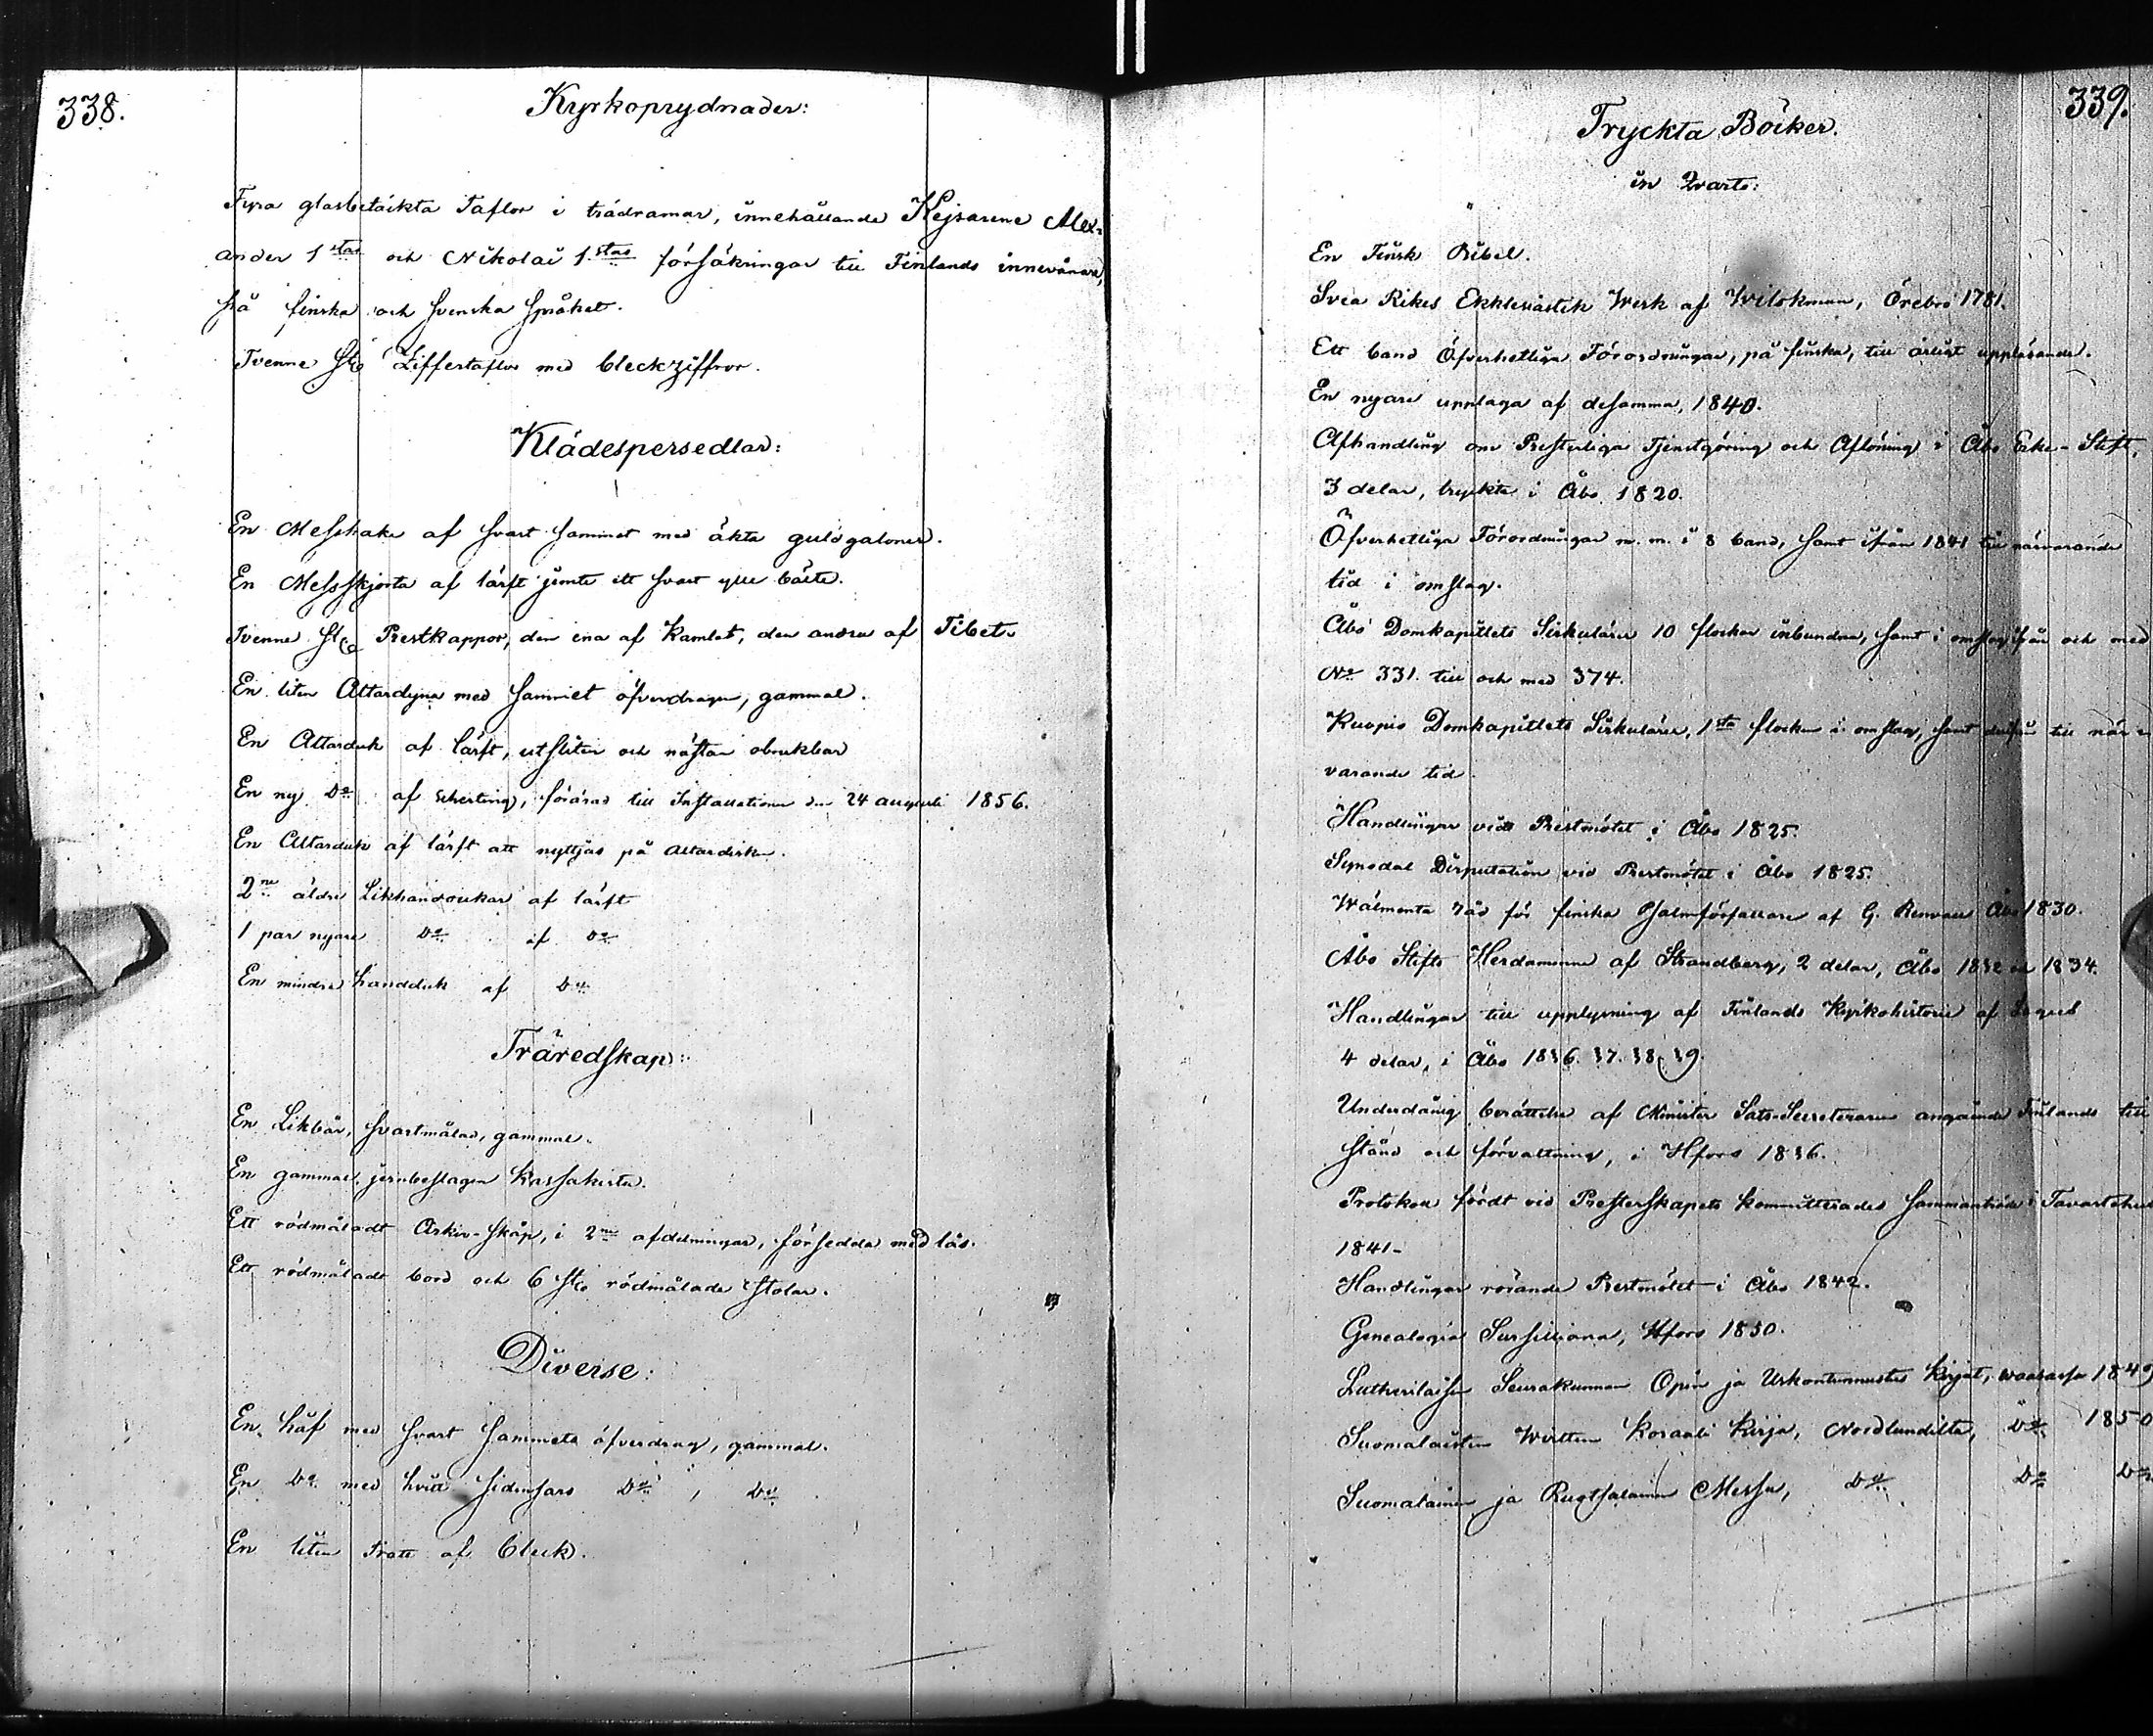 338.
Kyrkoprydnader:
Fyra glasbetäckta Taflor i trädramar, innehållande Kejsarene Alex-
ander 1stas och Nikolai 1stas försäkringar till Finlands innevånare,
på finska och svenska språket.
Tvenne st. Ziffertaflor med bleckziffror.
Klädespersedlar:
En Messhake af svart sammet med äkta guldgaloner.
En Messskjorta af lärft jemte ett svart ylle bälte.
Tvenne st. Prestkappor, den ena af Kamlot, den andra af Tibet.
En liten Altardyna med sammet öfverdragen, gammal.
En Altarduk af lärft, utsliten och nästan obrukbar
En ny Do af Scherting, förärad till Installationen den 24 augusti 1856.
En Altarduk af lärft att nyttjas på altardisken.
2ne äldre Likhanddukar af lärft
1 par nyare Do af Do
En mindre handduk af Do
Träredskap:
En Likbår, svartmålad, gammal.
En gammal jernbeslagen Kassakista.
Ett rödmåladt Arkiv-skåp, i 2ne afdelningar, försedda med lås.
Ett rödmåladt bord och 6 st. rödmålade stolar.
Diverse:
En håf med svart sammets öfverdrag, gammal.
En Do med hvitt sidensars Do, Do
En liten Tratt af bleck.
339.
Tryckta Böcker.
in Qvarto:
En Finsk Bibel.
Svea Rikes Ekklesiastik Werk af Wilskman, Örebro 1781.
Ett band Öfverhetliga Förordningar, på finska, till årligt uppläsande.
En nyare upplaga af desamma, 1840.
Afhandling om Presterliga Tjenstgöring och Aflöning i Åbo Erke-Stift,
3 delar, tryckte i Åbo 1820.
Öfverhetliga Förordningar m. m. i 8 band, samt ifrån 1841 till närvarande
tid i omslag.
Åbo Domkapitlets Sirkulärer 10 flockar inbundna, samt i omslag ifrån och med
No 331. till och med 374.
Kuopio Domkapitlets Sirkulärer, 1sta flocken i omslag, samt derifrån till när-
varande tid.
Handlingar vid Prestmötet i Åbo 1825.
Synodal Disputation vid Prestmötet i Åbo 1825.
Wälmenta råd för finska Psalmförfattare af G. Renvall Åbo 1830.
Åbo Stifts Herdaminne af Strandberg, 2 delar, Åbo 1832 och 1834.
Handlingar till upplysning af Finlands Kyrkohistorie af
4 delar, i Åbo 1836. 37. 38. 39.
Underdånig berättelse af Minister Stats-Secreteraren angående Finlands till
stånd och förvaltning, i Hfors 1836.
Protokoll fördt vid Presterskapets kommitterades sammanträde i Tavastehus
1841-
Handlingar rörande Prestmötet i Åbo 1842.
Genealogia Sursilliana, Hfors 1850.
Lutherilaisen Seurakunnan Opin ja Uskontunnustus kirjat, Waasassa 1849
Suomalaisten Wirtten Koraali Kirja, Nordlundilta, Do 1850
Suomalainen ja Ruotsalainen Messu, Do Do Do